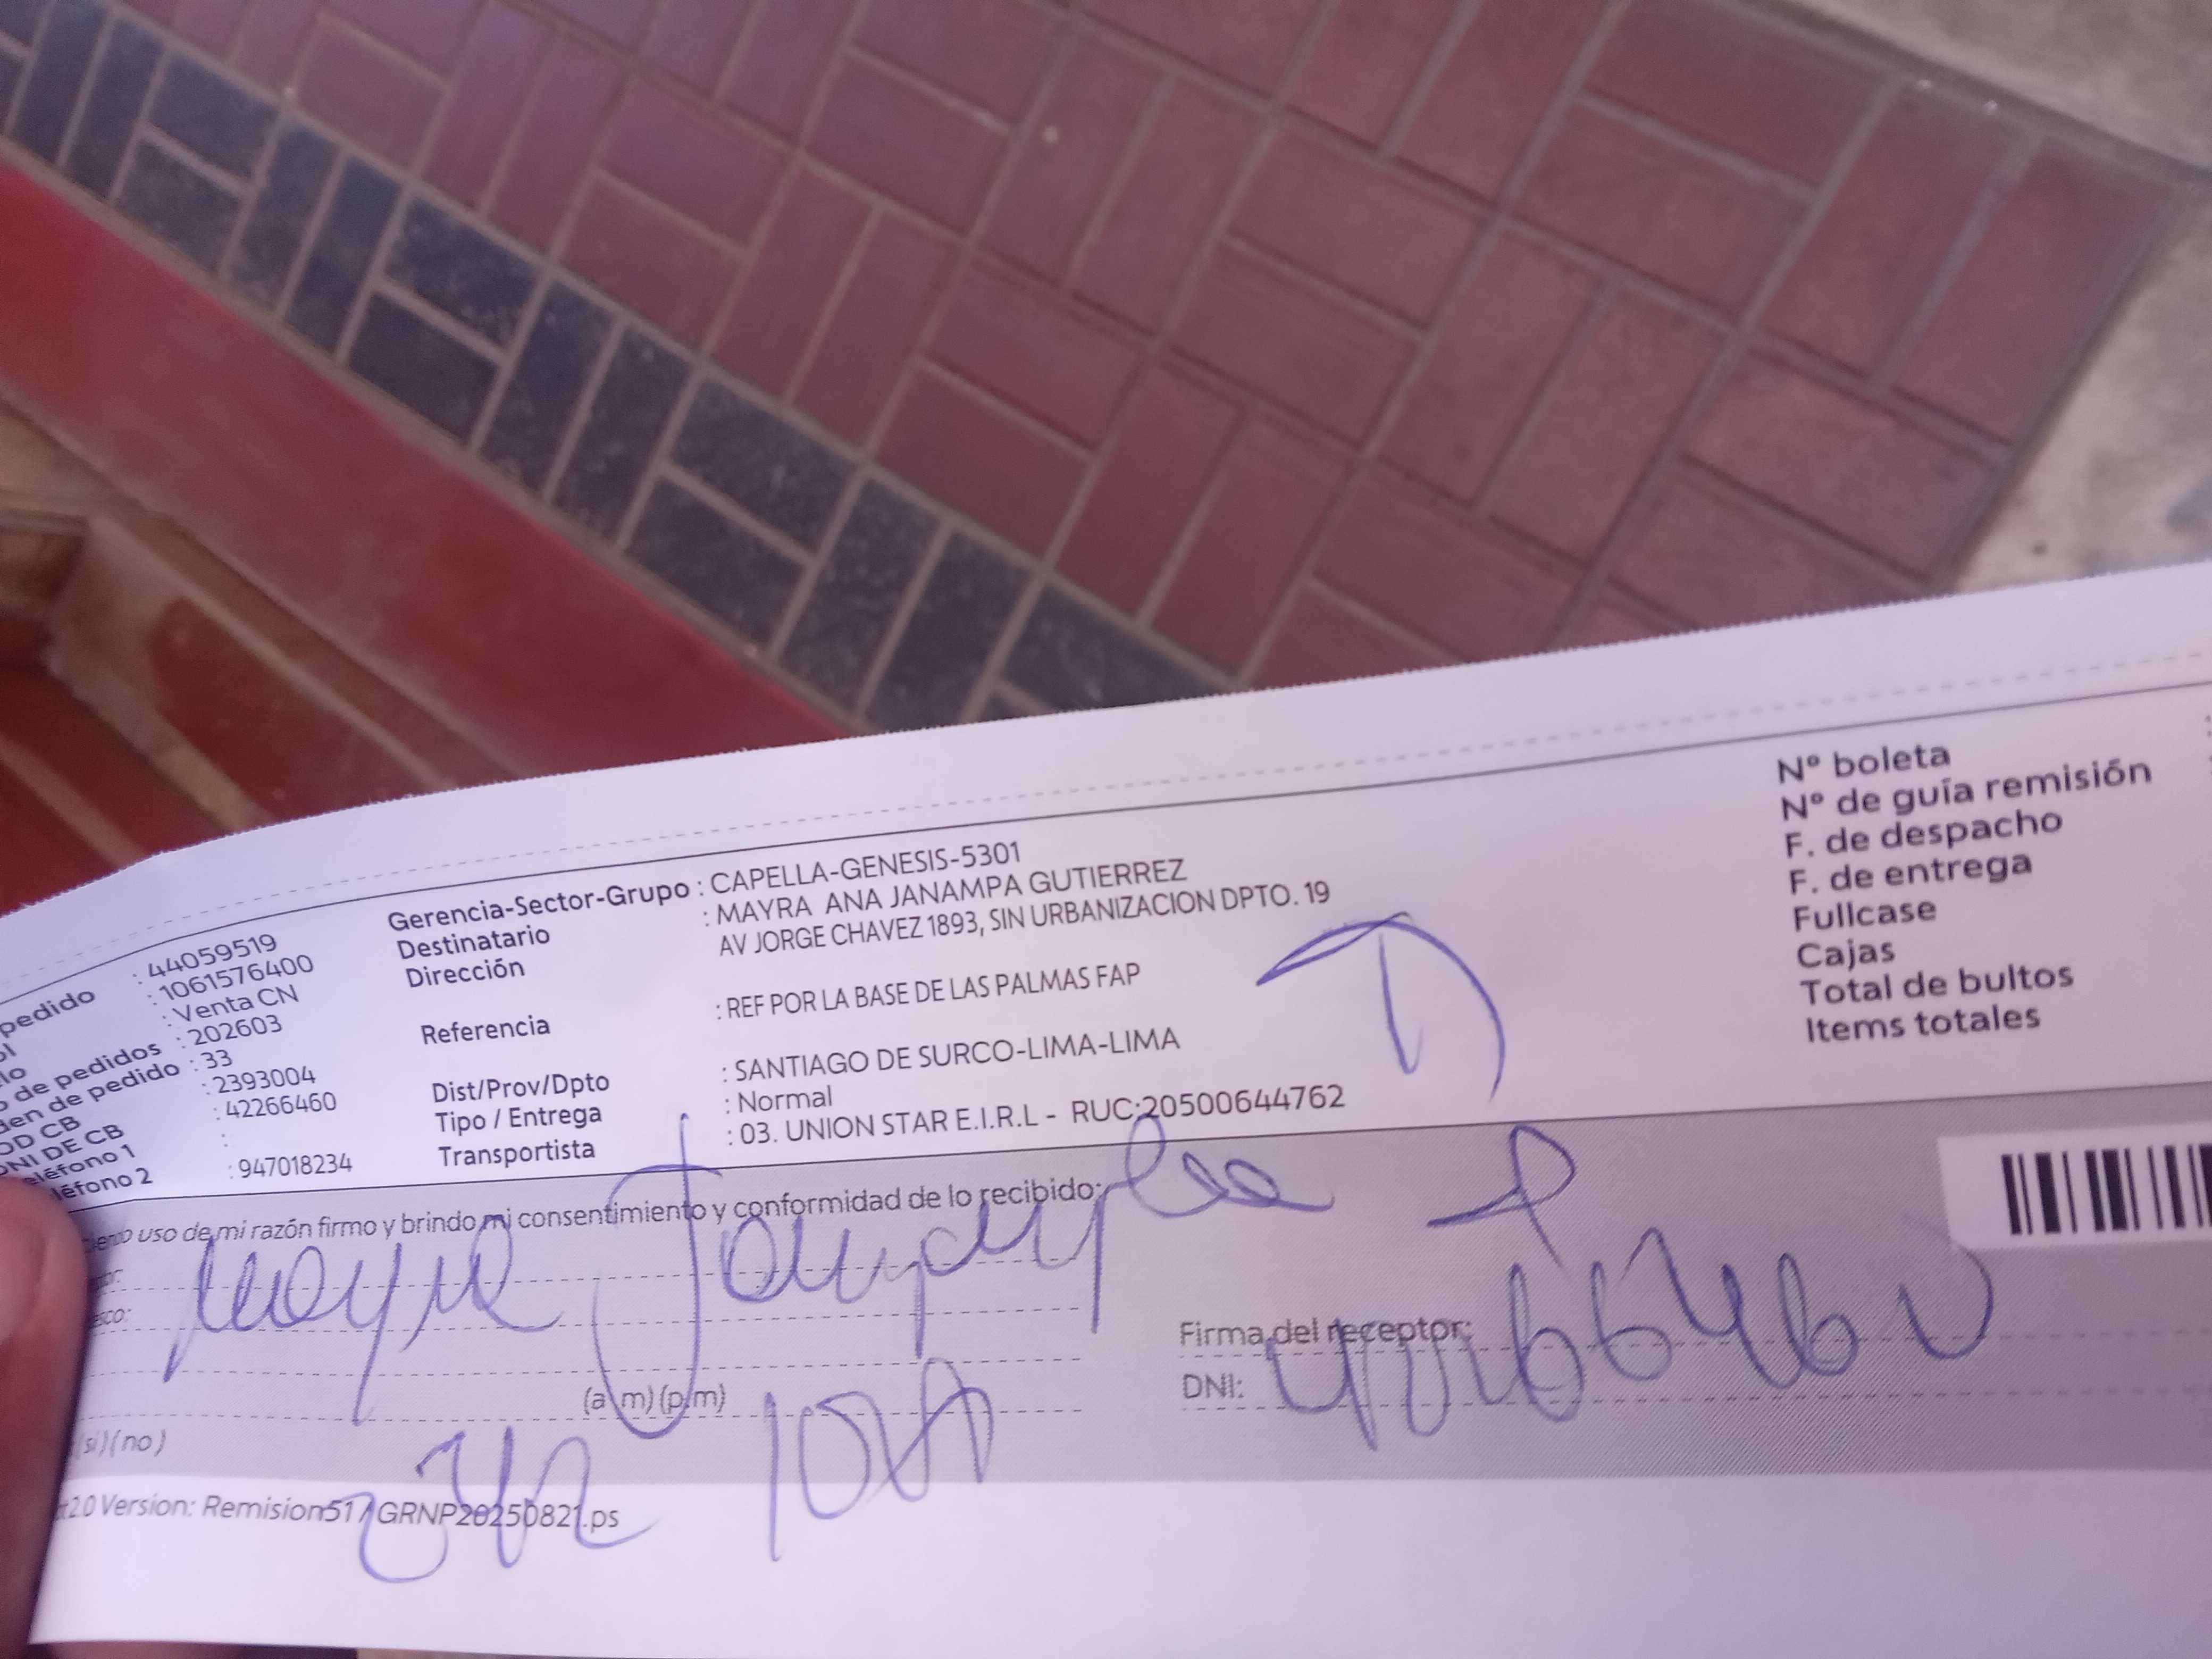 pedido : 44059519
: 1061576400
: Venta CN
de pedidos : 202603
den de pedido : 33
OD CB : 2393004
DNI DE CB : 42266460
eléfono 1 :
léfono 2 : 947018234
Gerencia-Sector-Grupo : CAPELLA-GENESIS-5301
Destinatario : MAYRA ANA JANAMPA GUTIERREZ
Dirección AV JORGE CHAVEZ 1893, SIN URBANIZACION DPTO. 19
Referencia : REF POR LA BASE DE LAS PALMAS FAP
Dist/Prov/Dpto : SANTIAGO DE SURCO-LIMA-LIMA
Tipo / Entrega : Normal
Transportista : 03. UNION STAR E.I.R.L - RUC:20500644762
N° boleta
N° de guía remisión
F. de despacho
F. de entrega
Fullcase
Cajas
Total de bultos
Items totales
uso de mi razón firmo y brindo mi consentimiento y conformidad de lo recibido:
Mayra Janampa
Firma del receptor:
DNI: 42266460
(a.m) (p.m)
(si) (no)
2.0 Version: Remision51 / GRNP20250821.ps